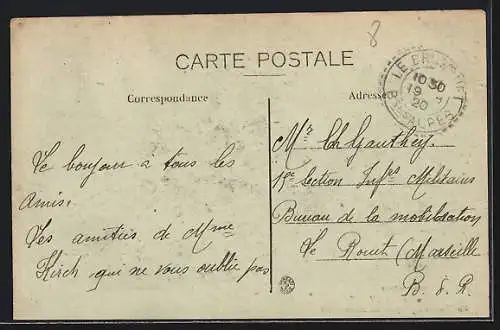 8
CARTE POSTALE
LE BRUSQUET
1030
19
20
BSES ALPES
Correspondance
Adresse
Le bonjour à tous les
Amis.
Les amitiés de Mme
Kirch qui ne vous oublie pas
Mr Ch Gauthey.
1re Section Infrs Militaires
Bureau de la mobilisation
Le Rouet (Marseille
B. d. R.